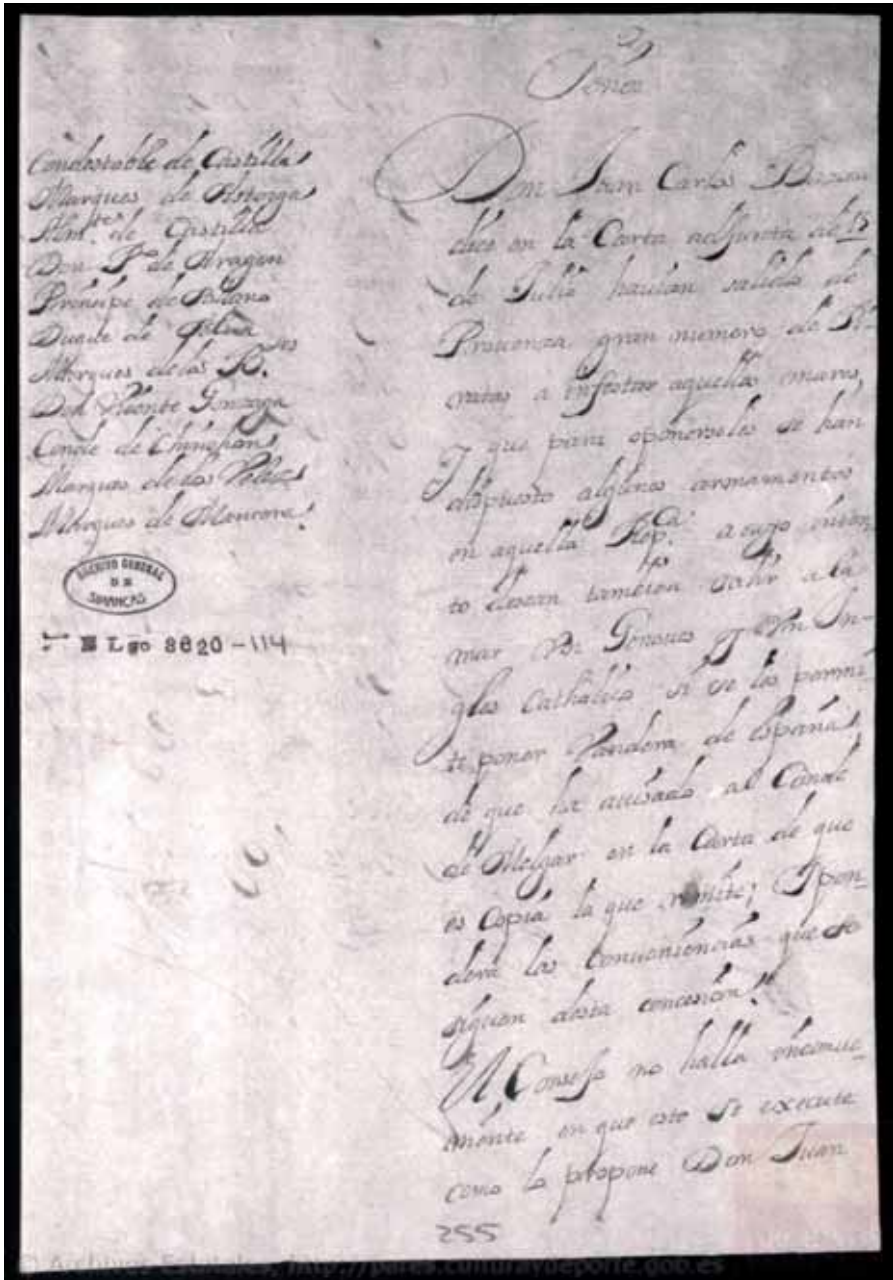 Señor
Condestable de Castilla
Marques de Astorga
Almte. de Castilla
Don Po. de Aragon
Principe de
Duque de Alva
Marques de los Bses.
Don Vicente Gonzaga
Conde de Chinchon
Marques de los Velez
Marques de Mancera
ARCHIVO GENERAL
DE
SIMANCAS
E Lgo 3620-114
Don Juan Carlos Bazan
dice en la Carta adjunta de 13
de Julio havian salido de
Provenza gran numero de Pi-
ratas a infestar aquellos mares,
Y que para oponerseles se han
dispuesto algunos armamentos
en aquella Repca. a cuyo inten-
to desean tambien salir a la
mar Vn Genoves y Vn In-
gles Catholico si se les permi-
te poner Vandera de españa,
de que ha avisado al Conde
de Melgar en la Carta de que
es Copia la que remite; Y pon-
dera las Conveniencias que se
siguen desta concesion.
El Consejo no halla inconve-
niente en que esto se execute
como lo propone Don Juan
255